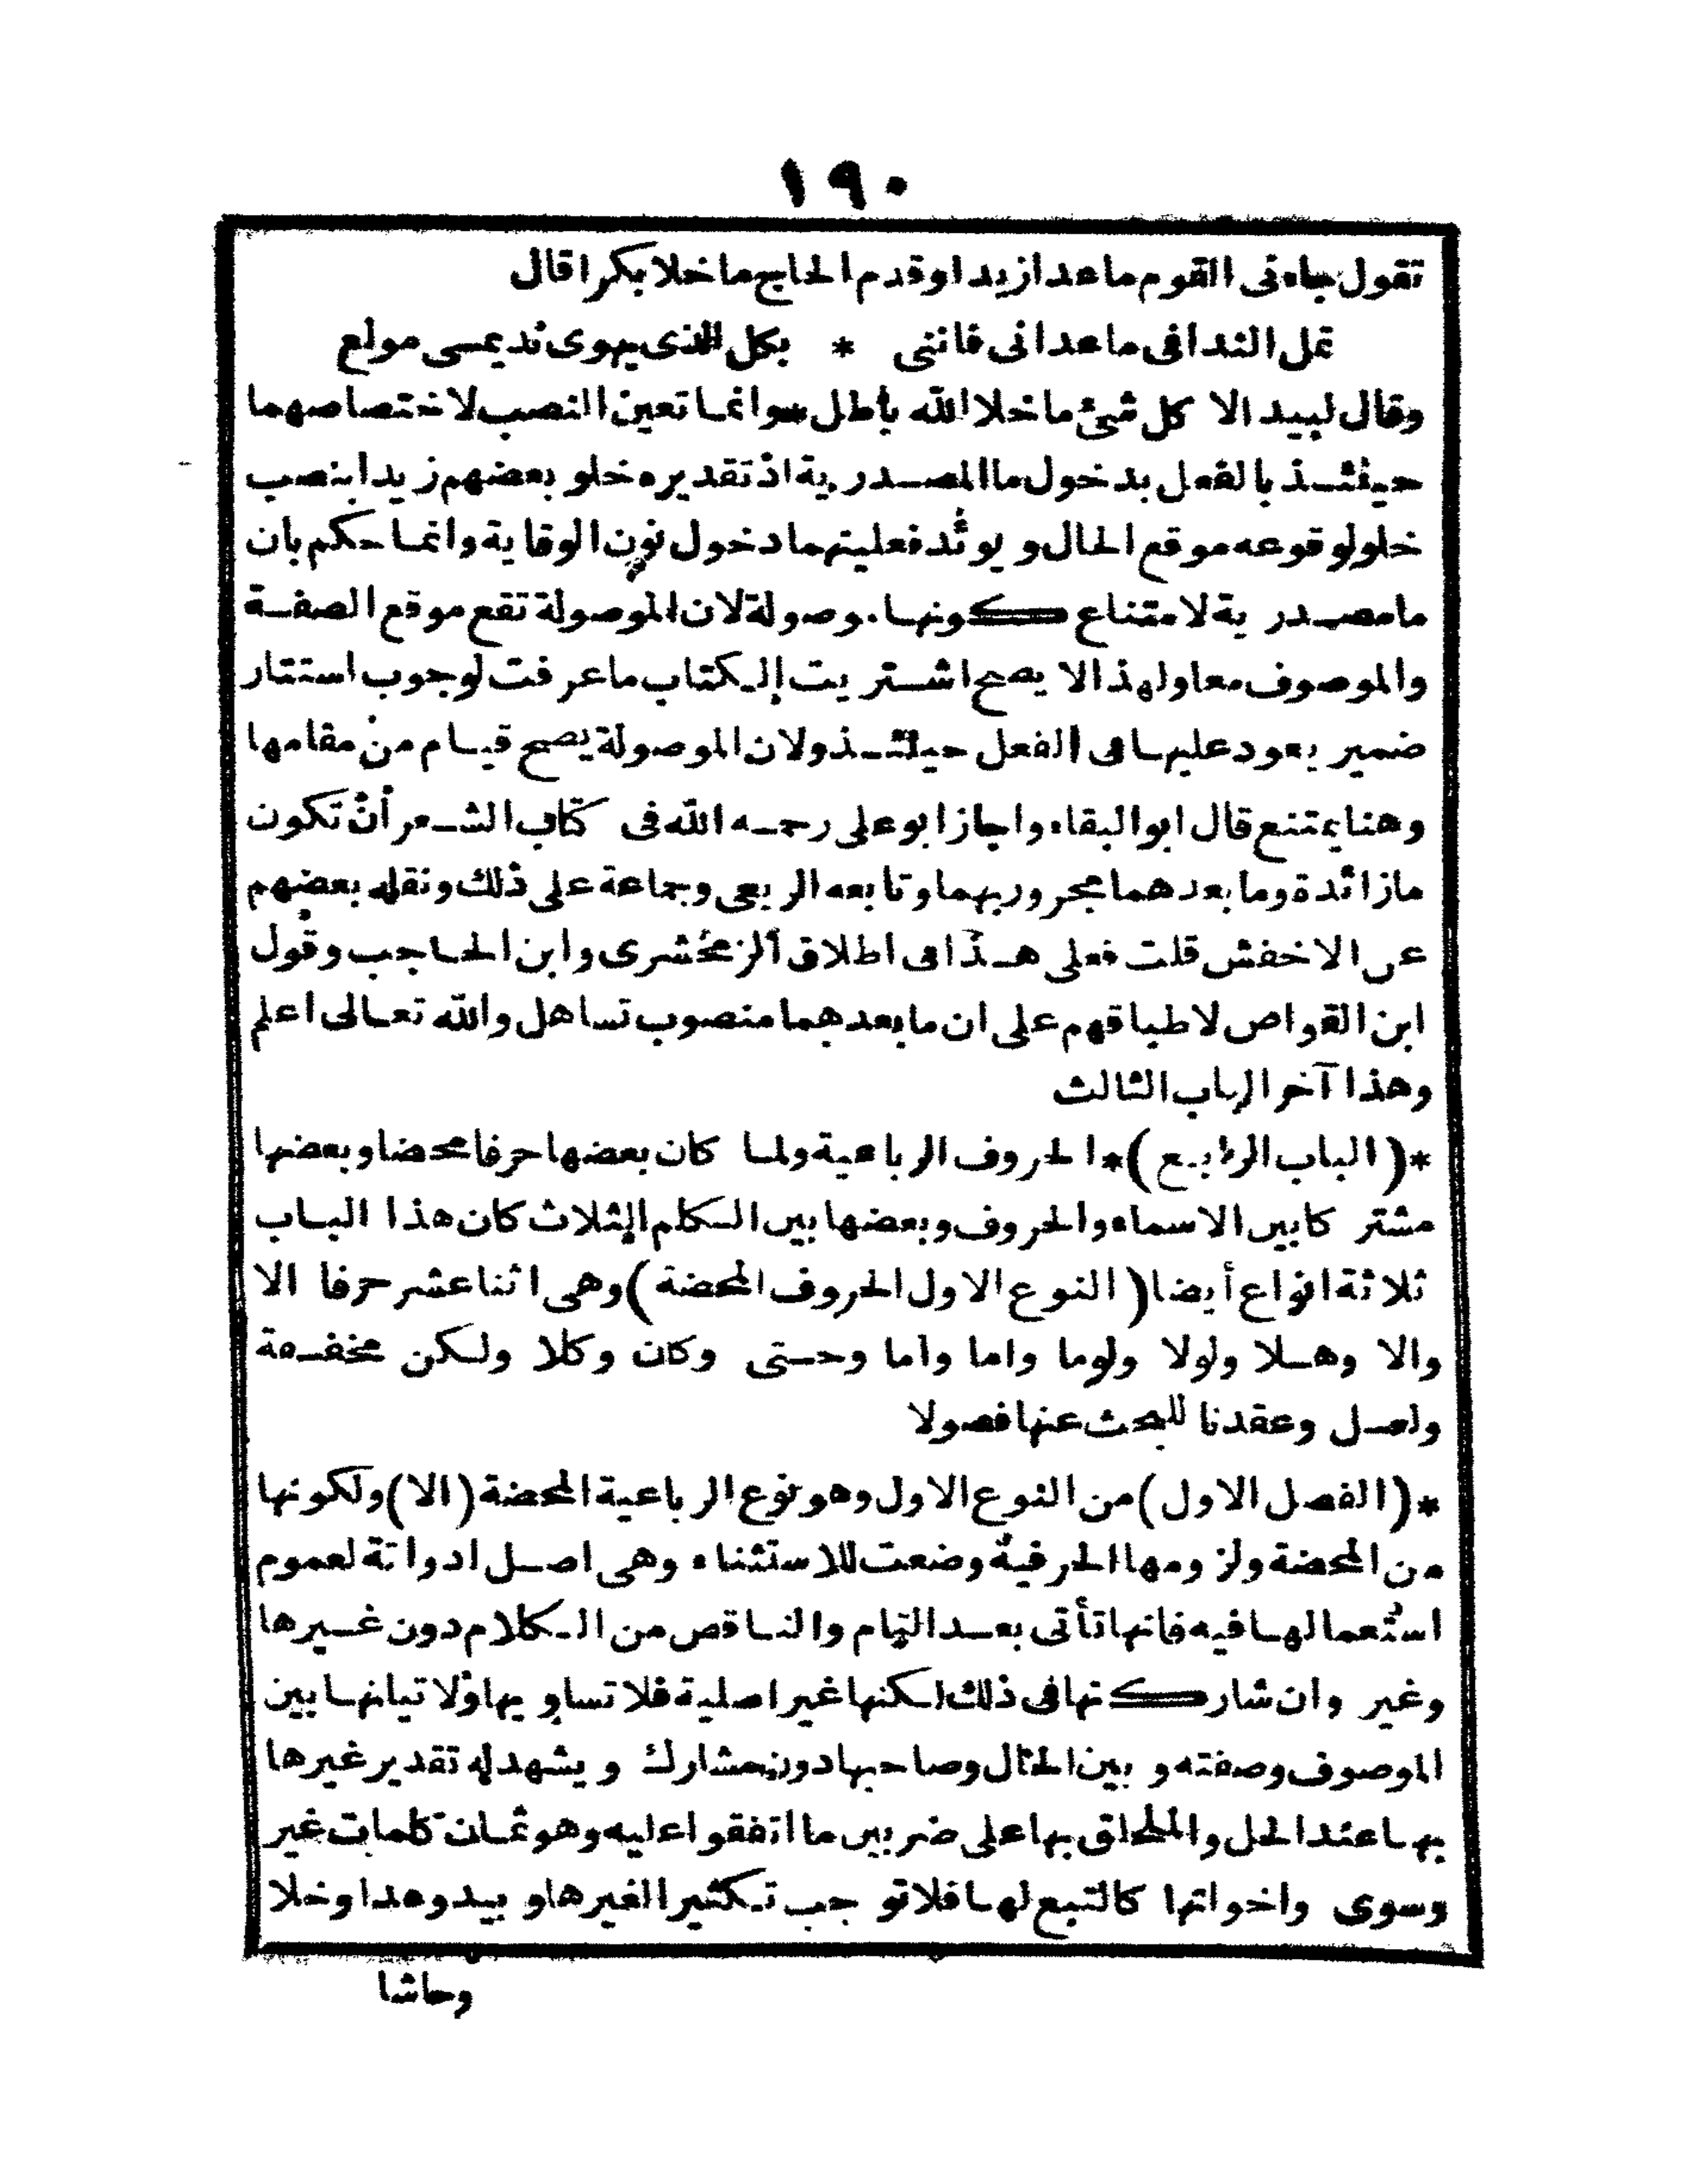 ١٩٠
تقول جاءنى القوم ماعدا زيدا وقدم الحاج ماخلا بكرا قال
تمل الندا فى ماعدانى فاننى * بكل الذى يهوى نديمى مولع
وقال لبيد الا كل شئ ماخلا الله باطل * وانما تعين النصب لاختصاصهما
حينئذ بالفعل بدخول ما المصدرية اذ تقديره خلو بعضهم زيدا بنصب
خلو لوقوعه موقع الحال ويوئد فعليتهما دخول نون الوقاية وانما حكم بان
ما مصدرية لامتناع كونها موصولة لان الموصولة تقع موقع الصفة
والموصوف معا ولهذا لا يصح اشتريت الكتاب ماعرفت لوجوب استتار
ضمير يعود عليها فى الفعل حينئذ ولان الموصولة يصح قيام من مقامها
وهنا يمتنع قال ابو البقاء واجاز ابو على رحمه الله فى كتاب الشعر أن تكون
ما زائدة وما بعدهما مجرور بهما وتابعه الربعى وجماعة على ذلك ونقله بعضهم
عن الاخفش قلت فعلى هذا فى اطلاق الزمخشرى وابن الحاجب وقول
ابن القواص لاطباقهم على ان ما بعدهما منصوب تساهل والله تعالى اعلم
وهذا آخر الباب الثالث
*(الباب الرابع)* الحروف الرباعية ولما كان بعضها حرفا محضا وبعضها
مشتركا بين الاسماء والحروف وبعضها بين الكلم الثلاث كان هذا الباب
ثلاثة انواع أيضا (النوع الاول الحروف المحضة) وهى اثنا عشر حرفا الا
والا وهلا ولولا ولوما واما واما وحتى وكان وكلا ولكن مخففة
ولعل وعقدنا للبحث عنها فصولا
*(الفصل الاول) من النوع الاول وهو نوع الرباعية المحضة (الا) ولكونها
من المحضة ولزومها الحرفية وضعت للاستثناء وهى اصل ادواتة لعموم
استعمالها فيه فانها تأتى بعد التام والناقص من الكلام دون غيرها
وغير وان شاركتها فى ذلك لكنها غير اصلية فلا تساويها ولاتيانها بين
الموصوف وصفته وبين الحال وصاحبها دون مشارك ويشهد له تقدير غيرها
بها عند الحل والملحق بها على ضربين ما اتفقوا عليه وهو ثمان كلمات غير
وسوى واخواتها كالتبع لها فلا توجب تكثيرا لغيرها وبيد وعدا وخلا
وحاشا